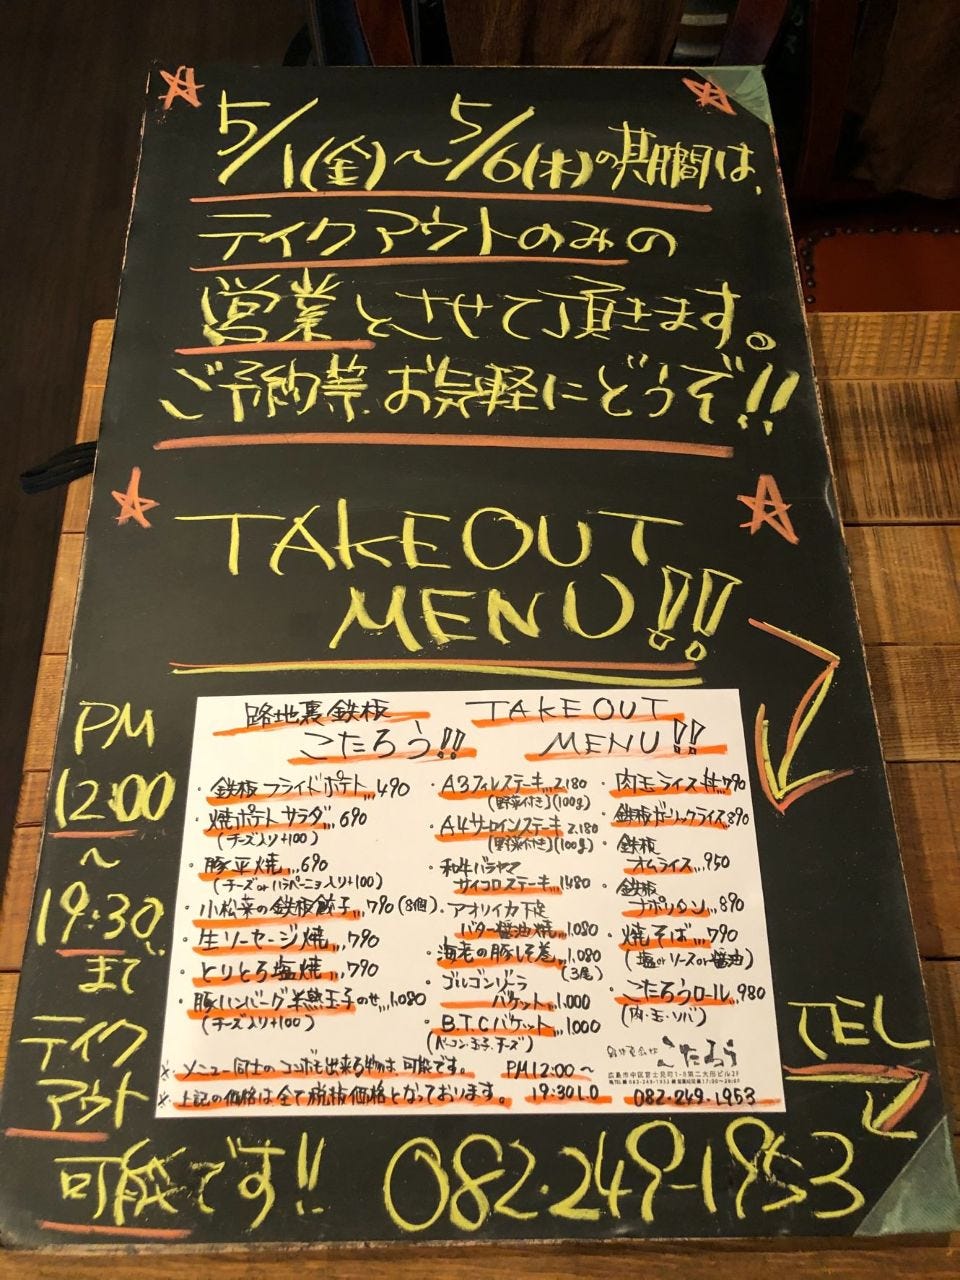 5/1(金)～5/6(水)の期間は、
テイクアウトのみの
営業とさせて頂きます。
ご予約等、お気軽にどうぞ!!
TAKEOUT
MENU!!
PM
12:00
～
19:30
まで
テイク
アウト
可能です!!
路地裏鉄板
こたろう!!
TAKE OUT
MENU!!
・鉄板フライドポテト,,,490
・焼ポテトサラダ,,,690
(チーズ入り+100)
・豚平焼,,,690
(チーズorハラペーニョ入り+100)
・小松菜の鉄板餃子,,,790(8個)
・生ソーセージ焼,,,790
・とりとろ塩焼,,,790
・豚ハンバーグ半熟玉子のせ,,,1,080
(チーズ入り+100)
・A3フィレステーキ,,,2.180
(野菜付き)(100g)
・A4サーロインステーキ 2.180
(野菜付き)(100g)
・和牛バラヤマ
サイコロステーキ,,,1480
・アオリイカ下足
バター醤油焼,,,1.080
・海老の豚しそ巻,,,1,080
(3尾)
・ゴルゴンゾーラ
バケット,,,1.000
・B.T.Cバケット,,,1000
(ベーコン・玉子・チーズ)
・肉玉ライス丼790
・鉄板ガーリックライス890
・鉄板
オムライス,,,950
・鉄板
ナポリタン,,,890
・焼そば,,,790
(塩orソースor醤油)
・こたろうロール,,,980
(肉・玉・ソバ)
※メニュー同士のコンボも出来る物は可能です。
※上記の価格は全て税抜価格となっております。
PM12:00～
19:30L.O
こたろう
広島市中区富士見町1-8第二大形ビル2F
082.249.1953
TEL
082.249-1953